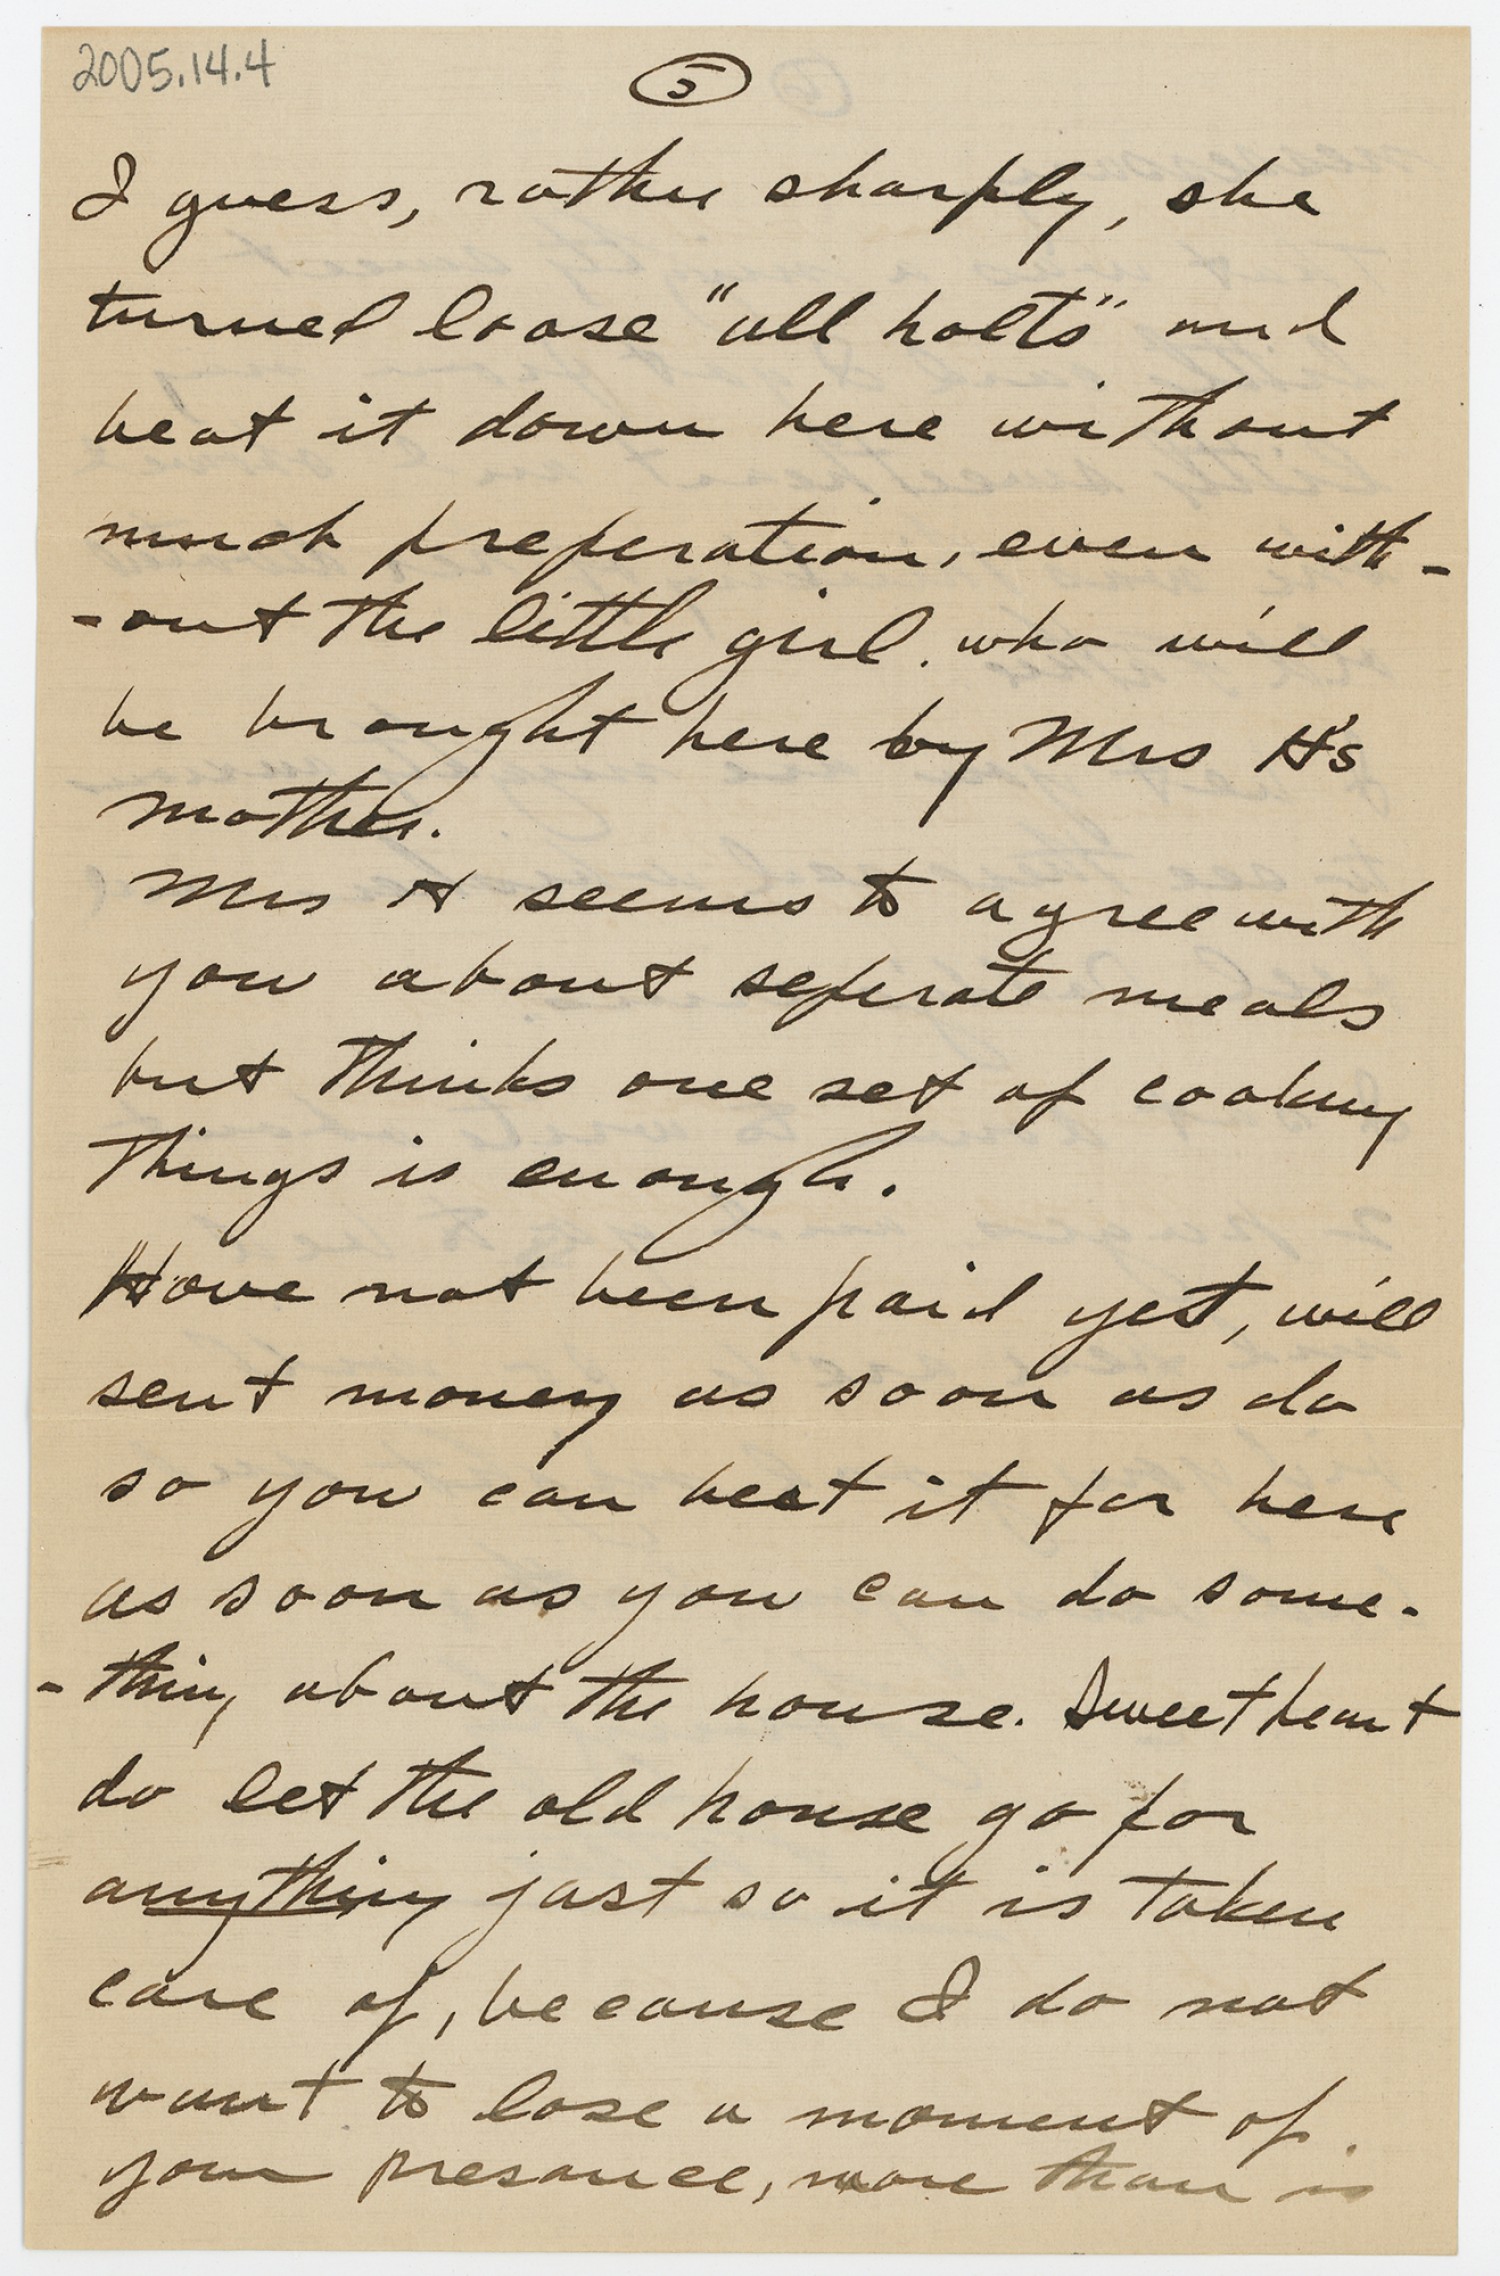 2005.14.4
5
I guess, rather sharply, she
turned loose "all holts" and
beat it down here without
much preperation, even with-
-out the little girl. who will
be brought here by Mrs H's
mother.
Mrs H seems to agree with
you about seperate meals
but thinks one set of cooking
things is enough.
Have not been paid yet, will
sent money as soon as do
so you can beat it for here
as soon as you can do some-
-thing about the house. Sweetheart
do let the old house go for
anything just so it is taken
care of, because I do not
want to lose a moment of
your presance, more than is